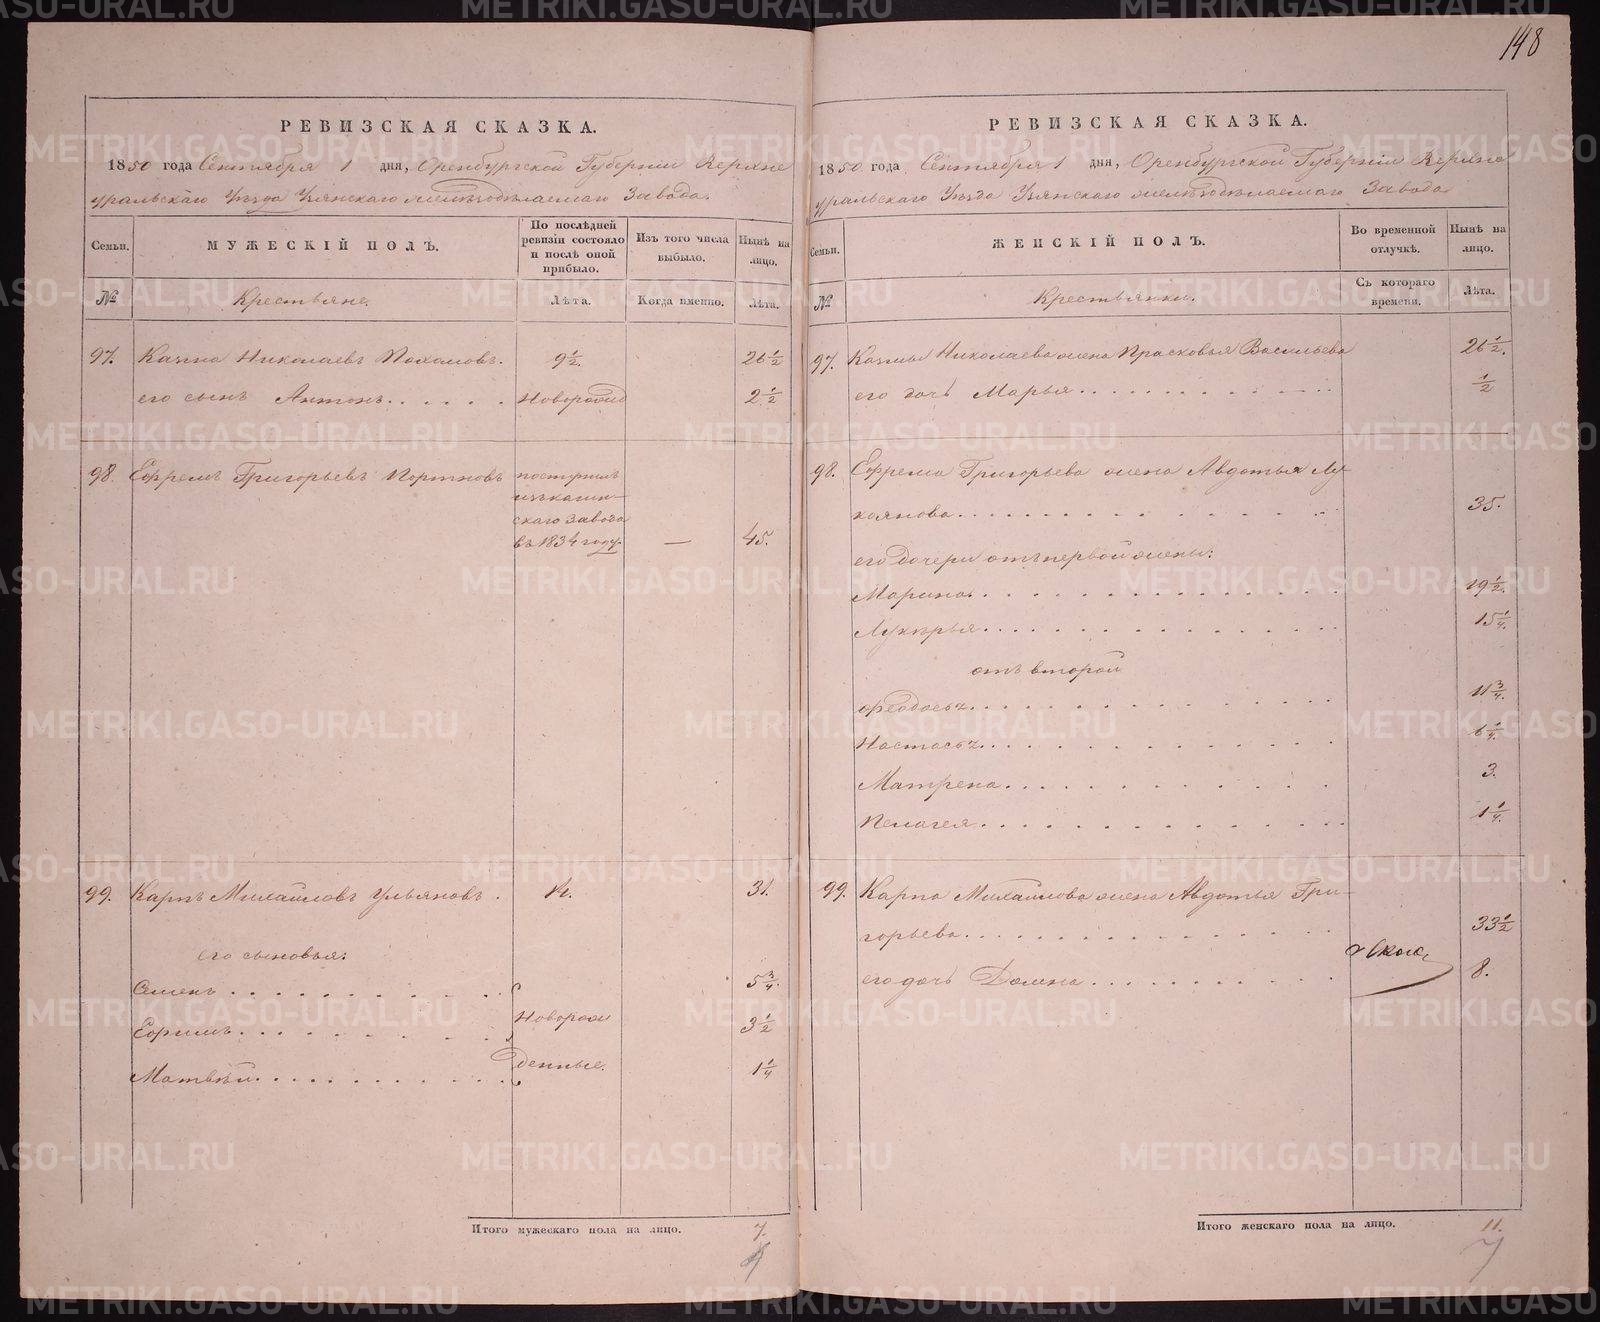 148
РЕВИЗСКАЯ СКАЗКА.
1850 года Сентября 1 дня, Оренбургской Губернiи Верхне
уральскаго Уѣзда Узянскаго желѣзодѣлаемаго Завода.
Семьи.
МУЖЕСКIЙ ПОЛЪ.
По послѣдней
ревизiи состояло
и послѣ оной
прибыло.
Изъ того числа
выбыло.
Нынѣ на
лицо.
№
Крестьяне.
Лѣта.
Когда именно.
Лѣта.
97. Казма Николаевъ Пахамовъ. 9 1/2. 26 1/2
его сынъ Антонъ . . . . . Новорожд 2 1/2
98. Ефремъ Григорьевъ Портновъ поступилъ
изъ кагин-
скаго завода
въ 1834 году. — 45.
99. Карпъ Михайловъ Ульяновъ. 31.
его сыновья:
Семенъ . . . . . . . . . 5 3/4.
Ефимъ . . . . . . . . . Новорож 3 1/2
Матвѣй . . . . . . . . . денные. 1 1/4
Итого мужескаго пола на лицо. 7.
РЕВИЗСКАЯ СКАЗКА.
1850 года Сентября 1 дня, Оренбургской Губернiи Верхне
уральскаго Уѣзда Узянскаго желѣзодѣлаемаго Завода
Семьи.
ЖЕНСКIЙ ПОЛЪ.
Во временной
отлучкѣ.
Нынѣ на
лицо.
№
Крестьянки.
Съ котораго
времени.
Лѣта.
97. Казмы Николаева жена Прасковья Васильева 26 1/2.
его дочь Марья . . . . . . . . . 1/2
98. Ефрема Григорьева жена Авдотья Лу-
коянова . . . . . . . . . 35.
его дочери отъ первой жены:
Марина . . . . . . . . . 19 1/2.
Лукѣрья . . . . . . . . . 15 1/4.
отъ второй
Феодосья . . . . . . . . . 11 3/4.
Настасья . . . . . . . . . 6 1/4.
Матрена . . . . . . . . . 3.
Пелагея . . . . . . . . . 1 1/4.
99. Карпа Михайлова жена Авдотья Гри-
горьева . . . . . . . . . 33 1/2
его дочь Домна . . . . . . . . . 8.
Итого женскаго пола на лицо. 11.
METRIKI.GASO-URAL.RU